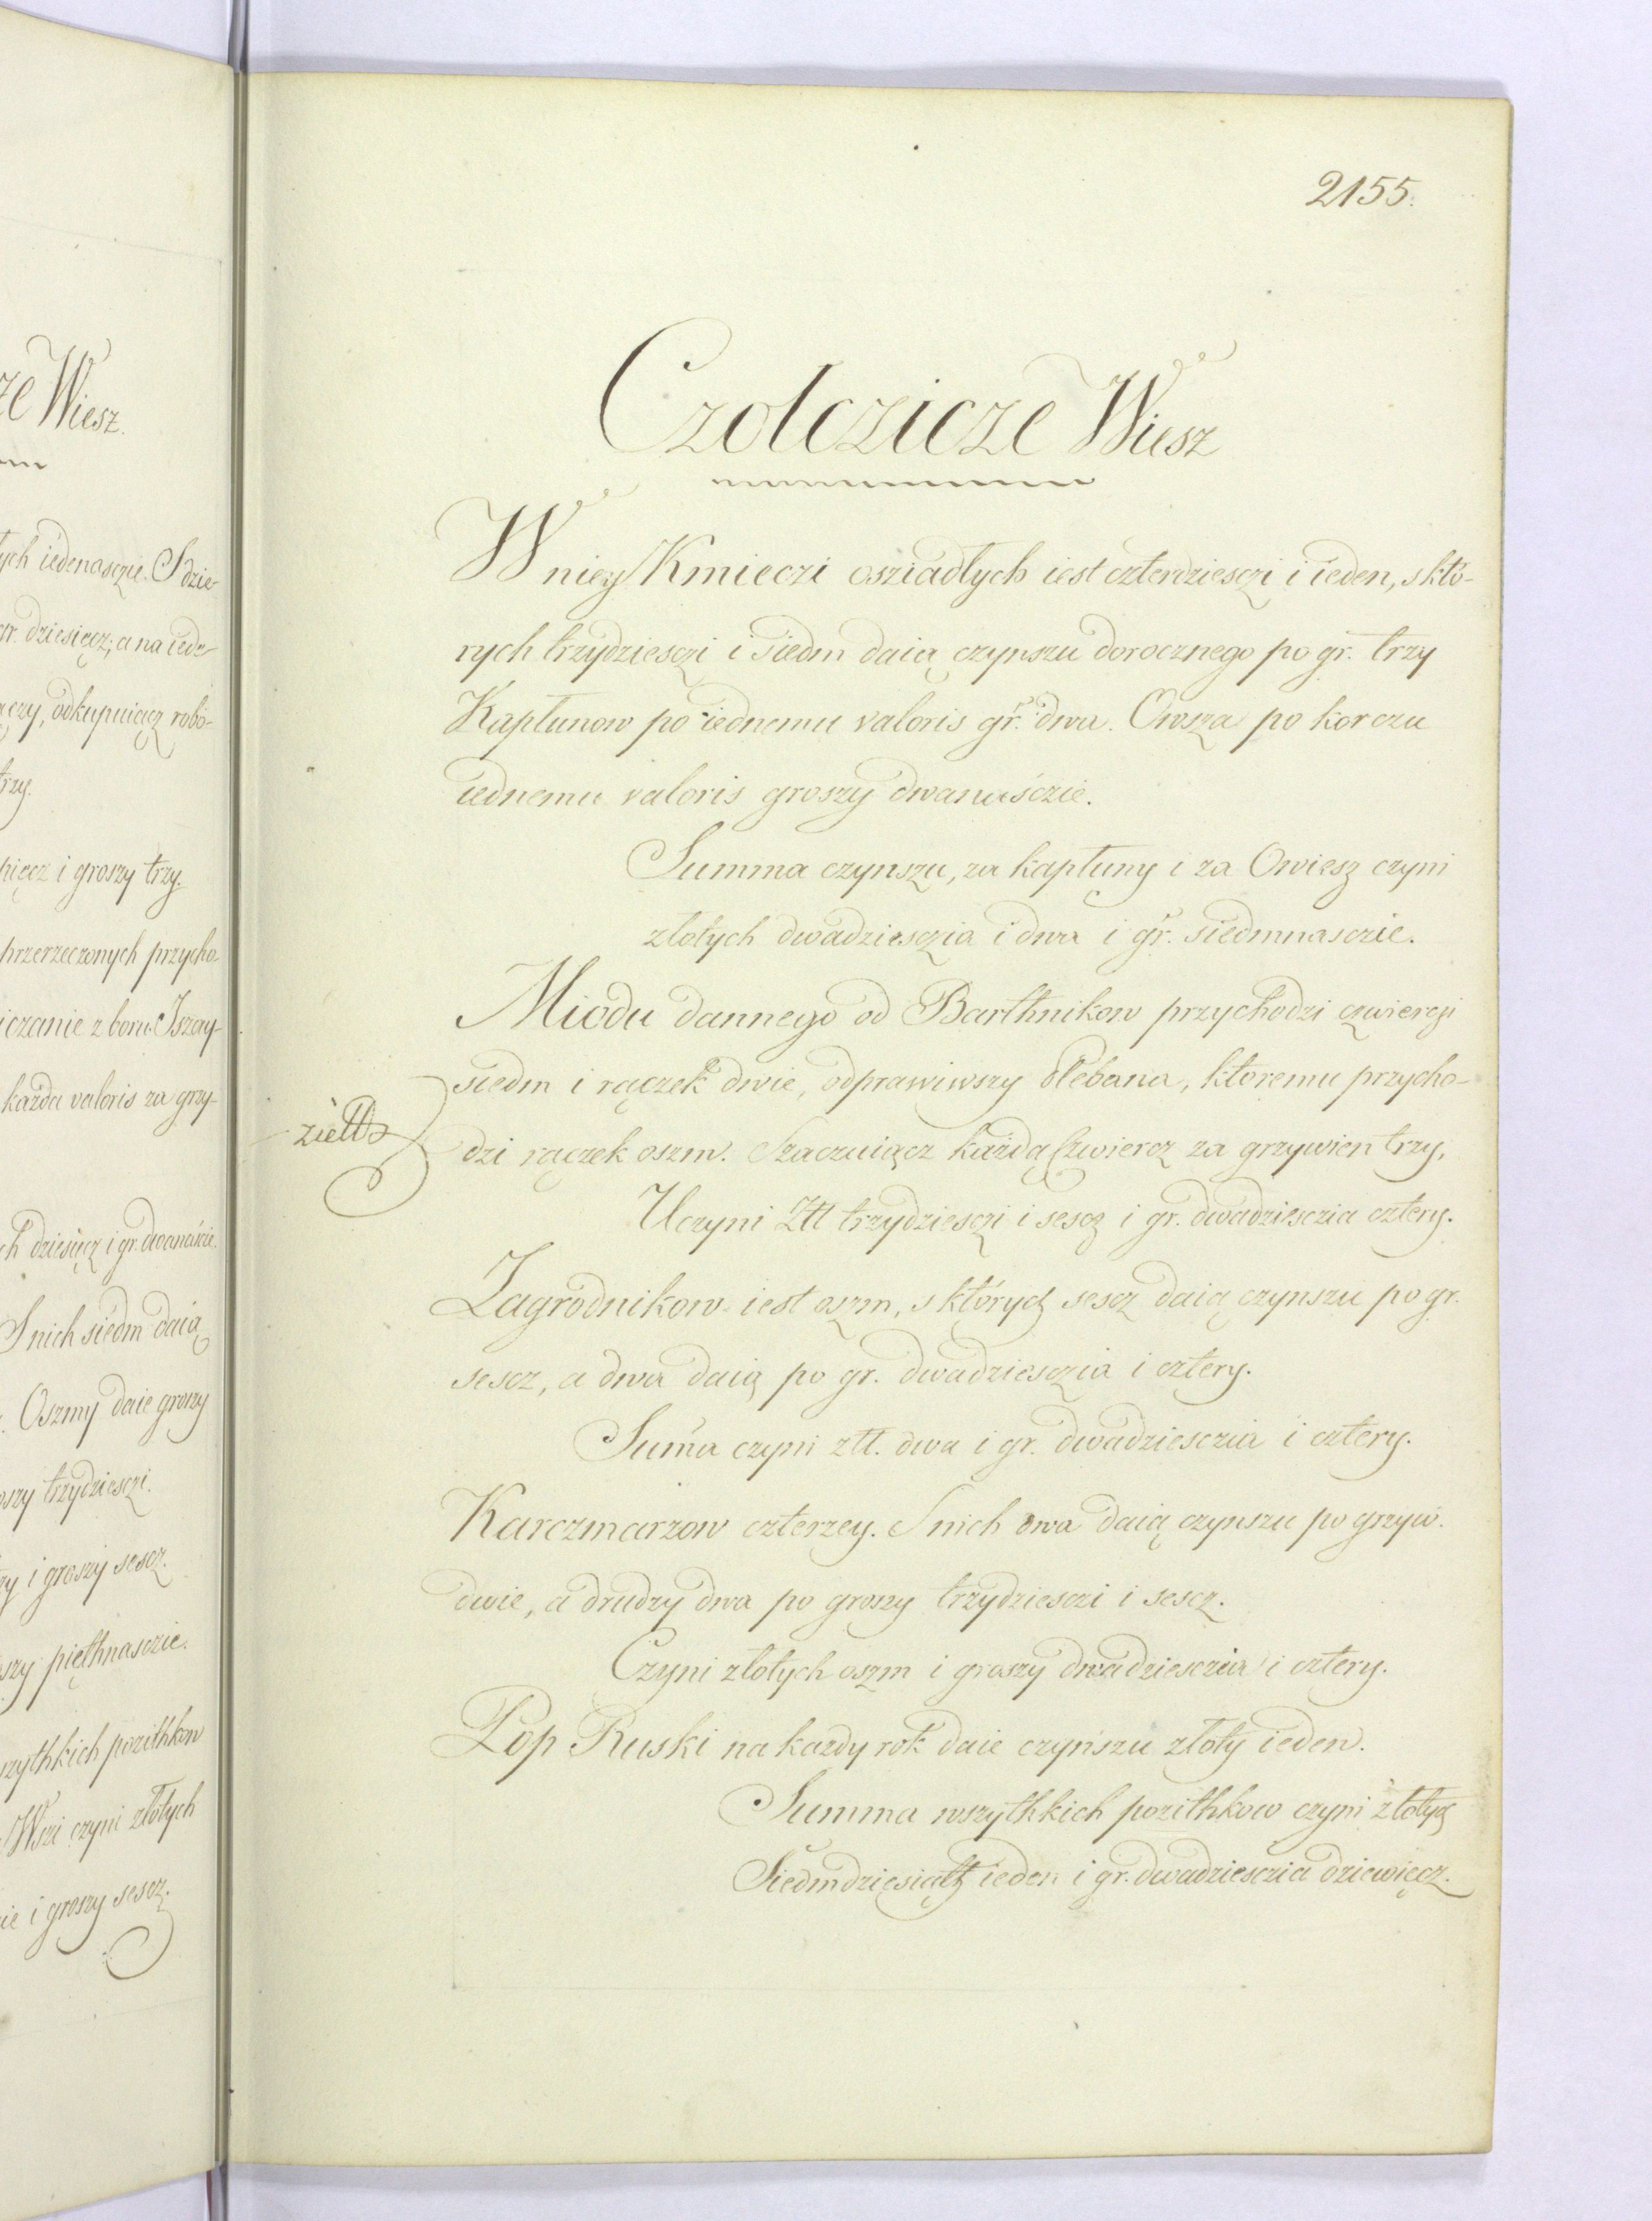 ze Wiesz.
ych iedenasczie. S dzie-
gr. dziesięcz, a na iede-
ączy, odkupuiącz robo-
trzy.
pięcz i groszy trzy.
przerzeczonych przycho-
iczanie z boru Iszay-
każda valoris za grzy-
ch dziesięcz i gr. dwanaście.
S nich siedm daią
. Oszmy daie groszy
oszy trzydziesczi.
zy i groszy sescz.
szy pięthnasczie.
szythkich pozithkow
Wsi czyni złotych
ie i groszy sescz.
2155.
Czolczicze Wiesz
W niey Kmieczi osziadłych iest czterdziesczi i ieden, s któ-
rych trzydziesczi i siedm daią czynszu dorocznego po gr. trzy
Kapłunow po iednemu valoris gr. dwa. Owsza po korczu
iednemu valoris groszy dwanaśczie.
Summa czynszu, za kapłuny i za Owiesz czyni
złotych dwadziesczia i dwa i gr. siedmnasczie.
Miodu dannego od Barthnikow przychodzi czwierczi
siedm i rączek dwie, odprawiwszy Plebana, ktoremu przycho-
zielb
dzi rączek oszm. Szaczuiącz każdą Czwiercz za grzywien trzy,
Uczyni Złł trzydziesczi i sescz i gr. dwadziesczia cztery.
Zagrodnikow iest oszm, s których sescz daią czynszu po gr.
sescz, a dwa daią po gr. dwadziesczia i cztery.
Suma czyni złł. dwa i gr. dwadziesczia i cztery.
Karczmarzow czterzey. S nich dwa daią czynszu po grzyw.
dwie, a drudzy dwa po groszy trzydziesczi i sescz.
Czyni złotych oszm i groszy dwadziesczia i cztery.
Pop Ruski na kazdy rok daie czynszu złoty ieden.
Summa wszythkich pozithkow czyni złotych
Siedmdziesiąth ieden i gr. dwadziesczia dziewięcz.